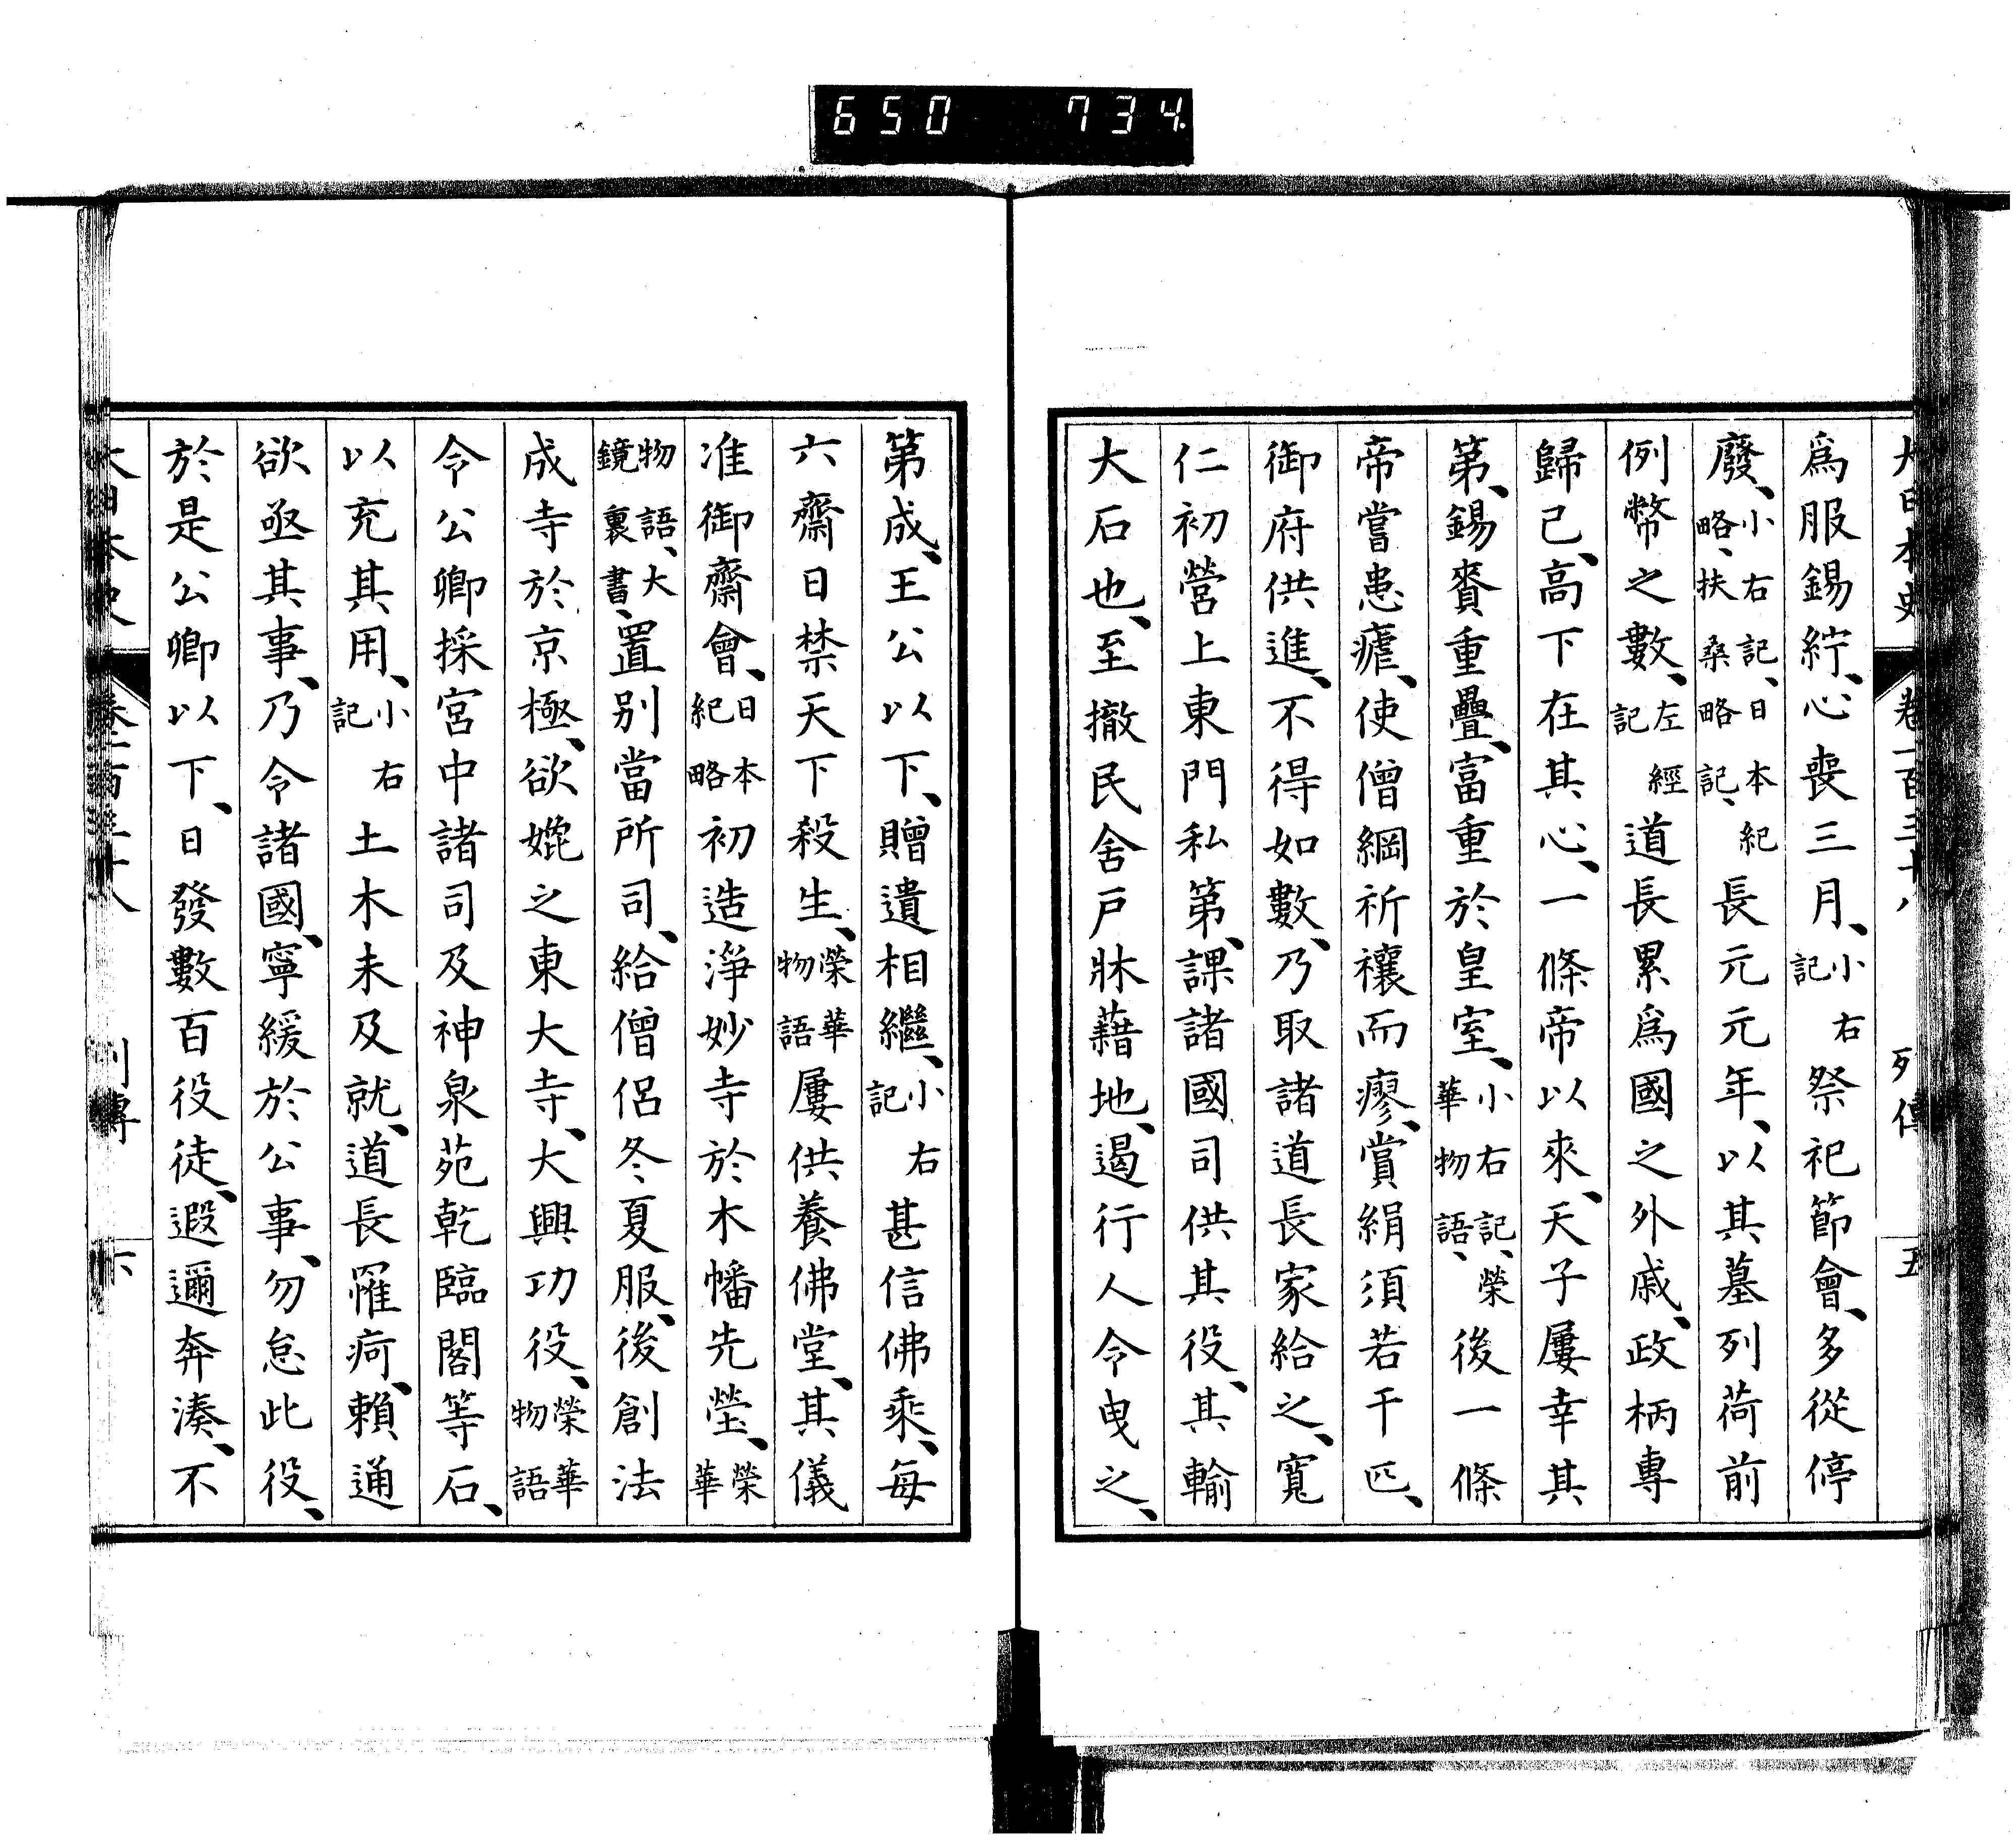 650 734
大日本史 卷一百三十八 列傳 五
爲服錫紵、心喪三月、小右記祭祀節會、多從停
廢、小右記、日本紀略、扶桑略記、長元元年、以其墓列荷前
例幣之數、左經記道長累爲國之外戚、政柄專
歸己、高下在其心、一條帝以來、天子屢幸其
第、錫賚重疊、富重於皇室、小右記、榮華物語、後一條
帝嘗患瘧、使僧綱祈禳而瘳、賞絹須若干匹、
御府供進、不得如數、乃取諸道長家給之、寬
仁初營上東門私第、課諸國司供其役、其輸
大石也、至撤民舍戸牀藉地、遏行人令曳之、
第成、王公以下、贈遺相繼、小右記甚信佛乘、每
六齋日禁天下殺生、榮華物語屢供養佛堂、其儀
准御齋會、日本紀略初造淨妙寺於木幡先塋、榮華
物語、大鏡裏書、置別當所司、給僧侶冬夏服、後創法
成寺於京極、欲媲之東大寺、大興功役、榮華物語
令公卿採宮中諸司及神泉苑乾臨閣等石、
以充其用、小右記土木未及就、道長罹疴、賴通
欲亟其事、乃令諸國、寧緩於公事、勿怠此役、
於是公卿以下、日發數百役徒、遐邇奔湊、不
大日本史 卷一百三十八 列傳 六